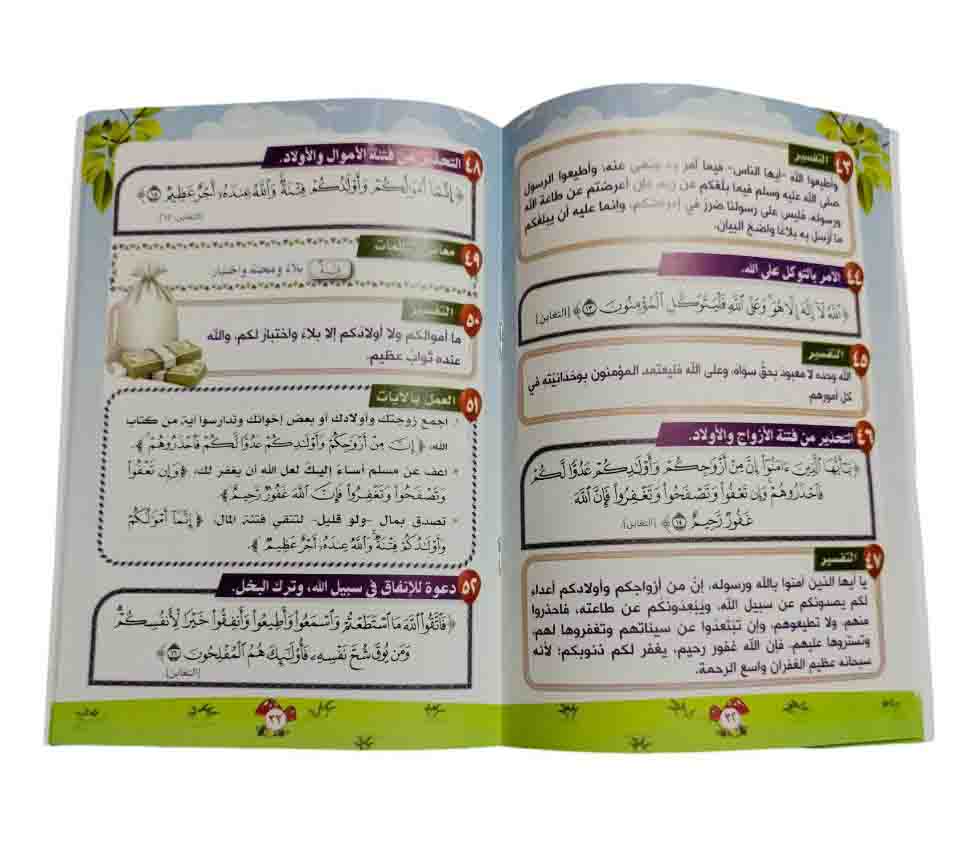 ٤٣ التفسير
وأطيعوا الله -أيها الناس- فيما أمر به ونهى عنه، وأطيعوا الرسول
صلى الله عليه وسلم فيما بلغكم عن ربه، فإن أعرضتم عن طاعة الله
ورسوله، فليس على رسولنا ضرر في إعراضكم، وإنما عليه أن يبلغكم
ما أرسل به بلاغا واضح البيان.
٤٤ الأمر بالتوكل على الله.
﴿ ٱللَّهُ لَآ إِلَٰهَ إِلَّا هُوَ وَعَلَى ٱللَّهِ فَلْيَتَوَكَّلِ ٱلْمُؤْمِنُونَ ١٣ ﴾ [التغابن]
٤٥ التفسير
الله وحده لا معبود بحق سواه، وعلى الله فليعتمد المؤمنون بوحدانيته في
كل أمورهم.
٤٦ التحذير من فتنة الأزواج والأولاد.
﴿ يَٰٓأَيُّهَا ٱلَّذِينَ ءَامَنُوٓا۟ إِنَّ مِنْ أَزْوَٰجِكُمْ وَأَوْلَٰدِكُمْ عَدُوًّا لَّكُمْ
فَٱحْذَرُوهُمْ وَإِن تَعْفُوا۟ وَتَصْفَحُوا۟ وَتَغْفِرُوا۟ فَإِنَّ ٱللَّهَ
غَفُورٌ رَّحِيمٌ ١٤ ﴾ [التغابن]
٤٧ التفسير
يا أيها الذين آمنوا بالله ورسوله، إنّ من أزواجكم وأولادكم أعداء
لكم يصدونكم عن سبيل الله، ويثبطونكم عن طاعته، فاحذروا
منهم، ولا تطيعوهم، وإن تتجاوزوا عن سيئاتهم وتغفروها لهم،
وتستروها عليهم، فإن الله غفور رحيم، يغفر لكم ذنوبكم؛ لأنه
سبحانه عظيم الغفران واسع الرحمة.
٣٢
٤٨ التحذير من فتنة الأموال والأولاد.
﴿ إِنَّمَآ أَمْوَٰلُكُمْ وَأَوْلَٰدُكُمْ فِتْنَةٌ وَٱللَّهُ عِندَهُۥٓ أَجْرٌ عَظِيمٌ ١٥ ﴾
٤٩ معاني الكلمات
فتنة بلاء ومحنة واختبار
٥٠ التفسير
ما أموالكم ولا أولادكم إلا بلاء واختبار لكم، والله
عنده ثواب عظيم.
٥١ العمل بالآيات
اجمع زوجتك وأولادك أو بعض إخوانك وتدارسوا آية من كتاب
الله، ﴿ إِنَّ مِنْ أَزْوَٰجِكُمْ وَأَوْلَٰدِكُمْ عَدُوًّا لَّكُمْ فَٱحْذَرُوهُمْ ﴾.
اعف عن مسلم أساء إليك لعل الله أن يغفر لك، ﴿ وَإِن تَعْفُوا۟
وَتَصْفَحُوا۟ وَتَغْفِرُوا۟ فَإِنَّ ٱللَّهَ غَفُورٌ رَّحِيمٌ ﴾.
تصدق بمال -ولو قليل- لتتقي فتنة المال، ﴿ إِنَّمَآ أَمْوَٰلُكُمْ
وَأَوْلَٰدُكُمْ فِتْنَةٌ وَٱللَّهُ عِندَهُۥٓ أَجْرٌ عَظِيمٌ ﴾.
٥٢ دعوة للإنفاق في سبيل الله، وترك البخل.
﴿ فَٱتَّقُوا۟ ٱللَّهَ مَا ٱسْتَطَعْتُمْ وَٱسْمَعُوا۟ وَأَطِيعُوا۟ وَأَنفِقُوا۟ خَيْرًا لِّأَنفُسِكُمْ
وَمَن يُوقَ شُحَّ نَفْسِهِۦ فَأُو۟لَٰٓئِكَ هُمُ ٱلْمُفْلِحُونَ ١٦ ﴾
[التغابن]
٣٣